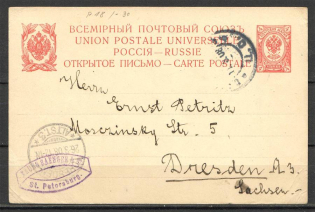 ВСЕМІРНЫЙ ПОЧТОВЫЙ СОЮЗЪ
UNION POSTALE UNIVERSELLE
РОССІЯ—RUSSIE
ОТКРЫТОЕ ПИСЬМО—CARTE POSTALE
Herrn
Ernst Petritz
Mosczinsky Str. 5
Dresden A3.
Sachsen
St. Petersburg.